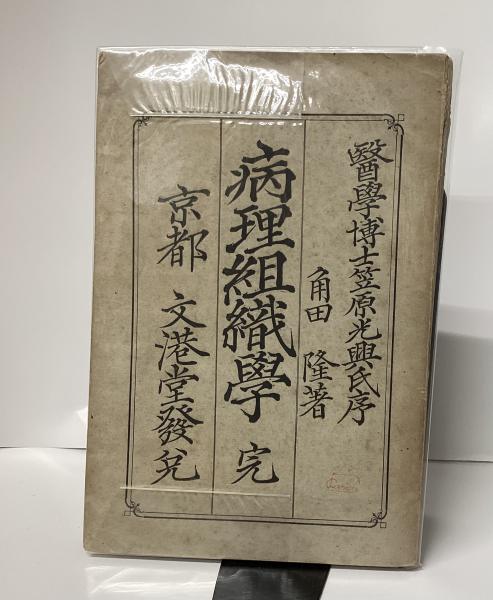 醫學博士笠原光興氏序
角田 隆著
病理組織學 完
京都 文港堂發兌